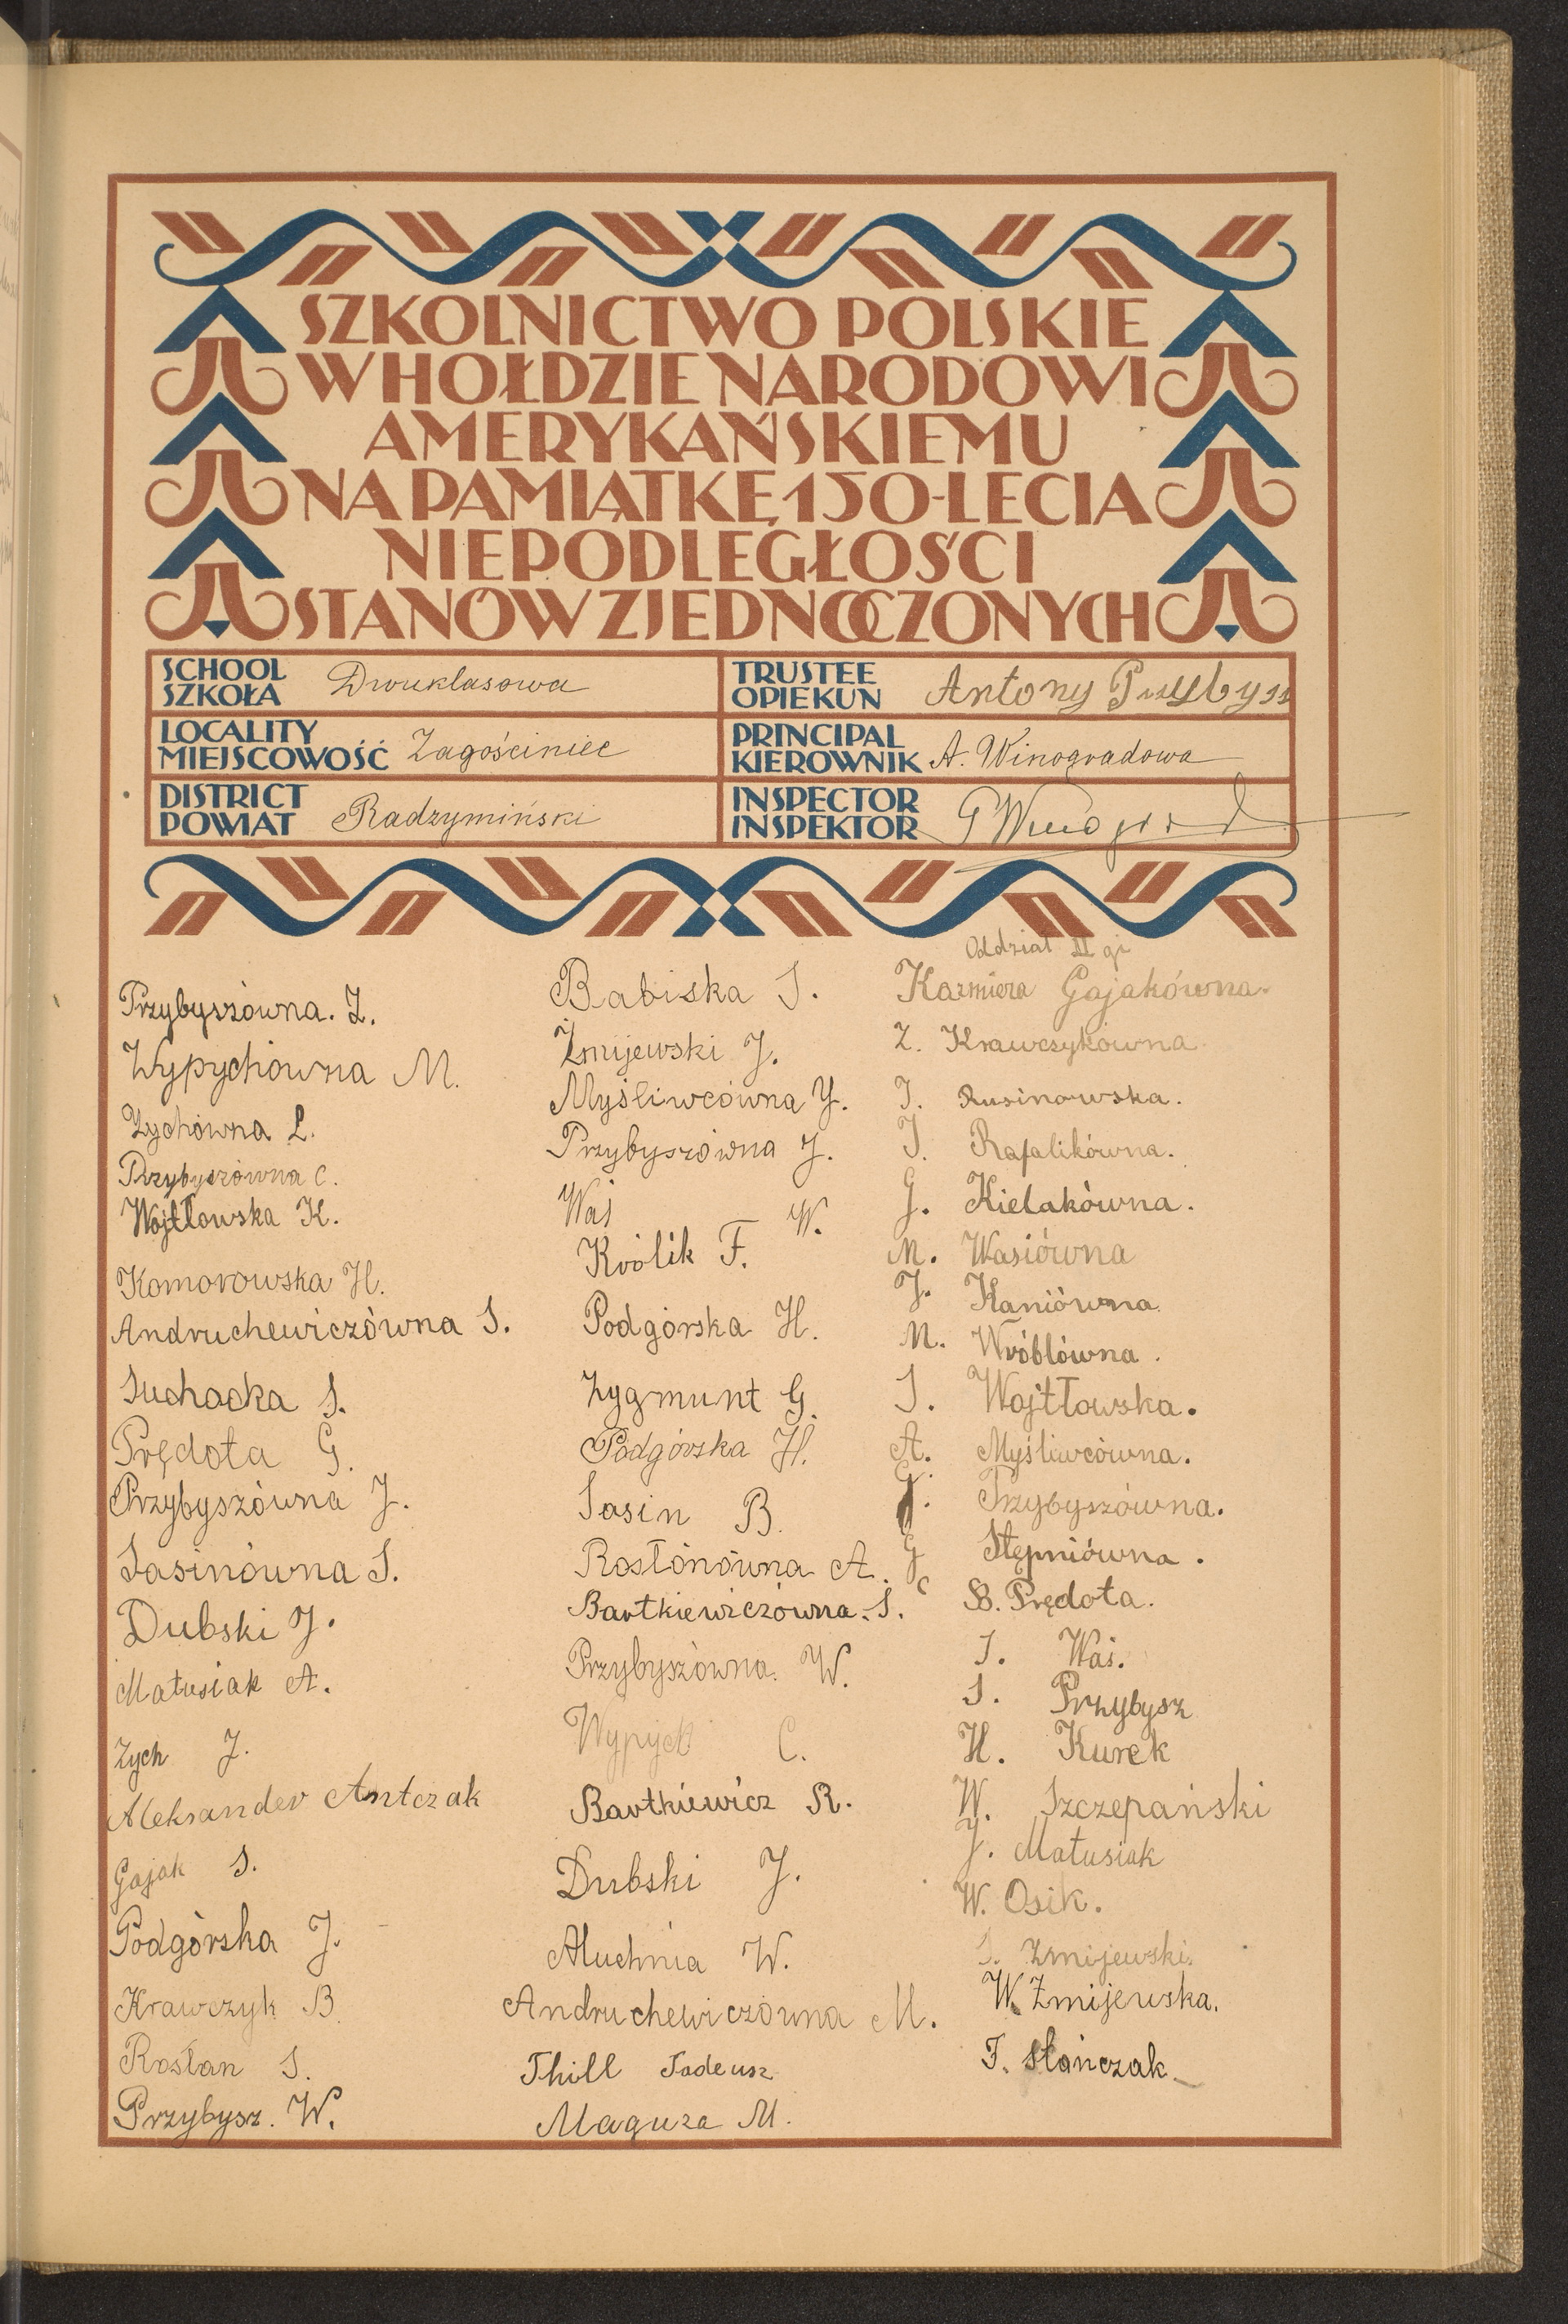 SZKOLNICTWO POLSKIE
W HOŁDZIE NARODOWI
AMERYKAŃSKIEMU
NA PAMIĄTKĘ 150-LECIA
NIEPODLEGŁOŚCI
STANÓW ZJEDNOCZONYCH
SCHOOL
SZKOŁA Dwuklasowa
TRUSTEE
OPIEKUN Antony Przybysz
LOCALITY
MIEJSCOWOŚĆ Zagościniec
PRINCIPAL
KIEROWNIK A. Winogradowa
DISTRICT
POWIAT Radzymiński
INSPECTOR
INSPEKTOR
Przybyszówna. Z.
Wypychówna M.
Zychówna L.
Przybyszówna C.
Wojtłowska K.
Komorowska H.
Andruchewiczówna S.
Suchacka S.
Prędota G.
Przybyszówna J.
Sasinówna S.
Dubski J.
Matusiak A.
Zych J.
Aleksander Antczak
Gajak S.
Podgórska J.
Krawczyk B.
Rosłan S.
Przybysz. W.
Babiska S.
Żmijewski J.
Myśliwcówna Y.
Przybyszówna J.
Waś W.
Królik F.
Podgórska H.
Zygmunt G.
Podgórska H.
Sasin B.
Rosłónówna A.
Bartkiewiczówna. S.
Przybyszówna. W.
Wypych C.
Bartkiewicz R.
Dubski J.
Aluchnia W.
Andruchewiczówna M.
Thill Tadeusz
Maguza M.
Oddział II gi
Kazmiera Gajakówna.
Z. Krawczykówna.
J. Rusinowska.
J. Rafalikówna.
G. Kielakówna.
M. Wasiówna
J. Kaniówna.
M. Wróblówna.
S. Wojtłowska.
A. Myśliwcówna.
G. Przybyszówna.
G Stępniówna.
B. Prędota.
S. Waś.
S. Przybysz
H. Kurek
W. Szczepański
J. Matusiak
W. Osik.
S. Zmijewski.
W. Żmijewska.
F. Słańczak